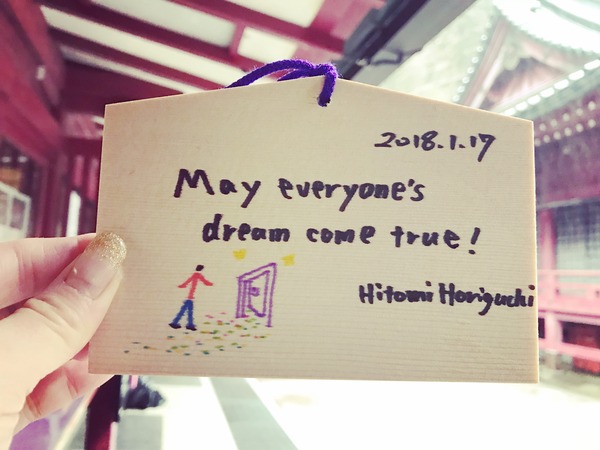 2018.1.17
May everyone's
dream come true!
Hitomi Horiguchi